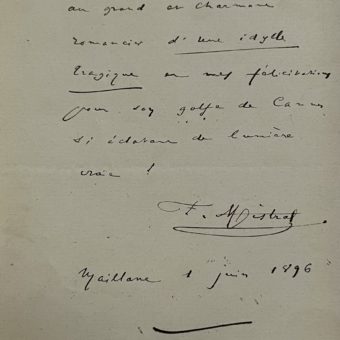 au grand et charmant
romancier d'Une idylle
tragique en mes félicitations
pour son golfe de Cannes
si éclatant de lumière
vraie !
F. Mistral
Maillane 1 juin 1896